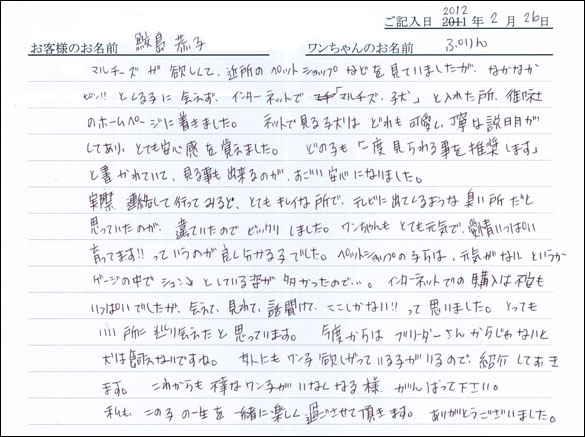 ご記入日 2012 2011 年 2 月 26 日
お客様のお名前 鮫島 恭子 ワンちゃんのお名前 ぷりん
マルチーズが欲しくて、近所のペットショップなどを見ていましたが、なかなか
ピン!!とくる子に会えず、インターネットで「マルチーズ・子犬」と入れた所、御社
のホームページに着きました。 ネットで見る子犬は どれも可愛く、丁寧な説明が
してあり、とても安心感を覚えました。 どの子も「一度見られる事を推奨します」
と書かれていて、見る事も出来るのが、すごい安心になりました。
実際 連絡して行ってみると、とてもキレイな所で、テレビに出てくるような臭い所だと
思っていたのが、違ていたので ビックリしました。ワンちゃんも とても元気で、愛情いっぱい
育ってます!!っていうのが良く分かる子でした。ペットショップの子らは、元気がないというか
ゲージの中で ションとしている姿が多かったので…。 インターネットでの購入は不安も
いっぱいでしたが、会えて、見れて、話聞けて、ここしかない!!って思いました。とっても
いい所に巡り会えたと思っています。 今度からは ブリーダーさんからじゃないと
犬は飼えないですね。 友人にもワン子欲しがっている子がいるので、紹介しておき
ます。 これからも 不幸なワン子がいなくなる様 がんばって下さい。
私も この子の一生を一緒に楽しく過ごさせて頂きます。 ありがとうございました。